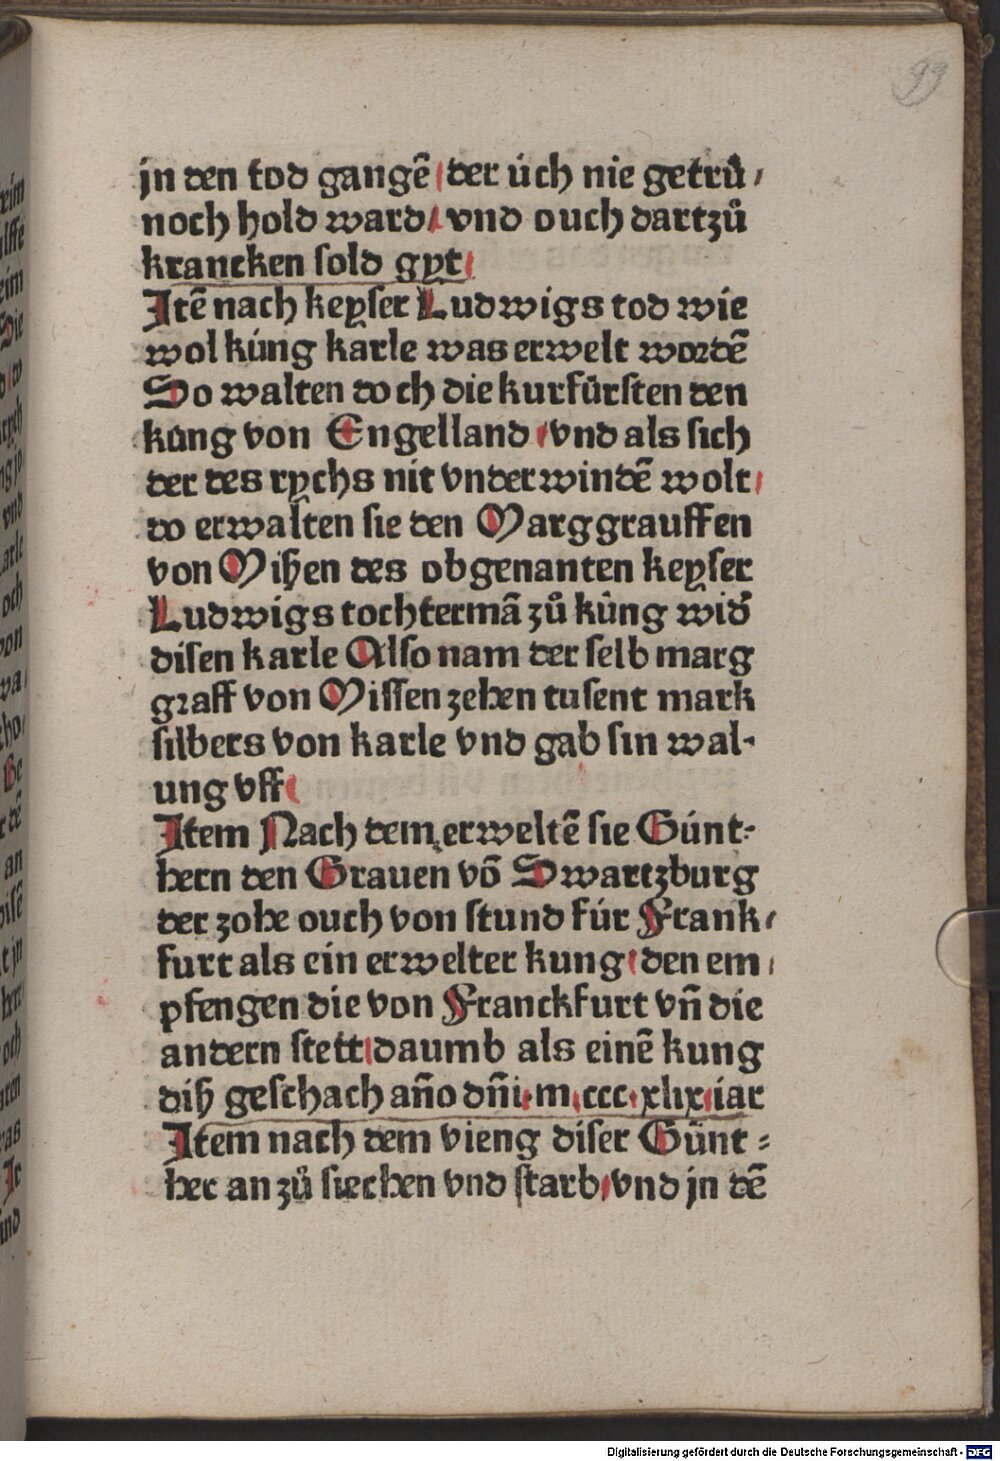 93
jn den tod gangē / der úch nie getrů /
noch hold ward / vnd ouch dartzů
krancken sold gyt /
Jtē nach keyser Ludwigs tod wie
wol kúng karle was erwelt wordē
So walten doch die kurfúrsten den
kúng von Engelland / vnd als sich
der des rychs nit vnderwindē wolt /
do erwalten sie den Marggrauffen
von Mißen des obgenanten keyser
Ludwigs tochtermā zů kúng wid͛
disen karle Also nam der selb marg
graff von Missen zehen tusent mark
silbers von karle vnd gab sin wal-
ung vff /
Jtem Nach dem erweltē sie Gúnt-
hern den Grauen vō Swartzburg
der zohe ouch von stund fúr Frank /
furt als ein erwelter kung / den em /
pfengen die von Franckfurt vn̄ die
andern stett / daumb als einē kung
diß geschach an̄o dn̄i · m · ccc · xlix · iar
Jtem nach dem vieng diser Gúnt-
her an zů siechen vnd starb / vnd jn dē
Digitalisierung gefördert durch die Deutsche Forschungsgemeinschaft - DFG